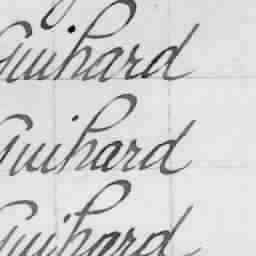 Guihard
Guihard
Guihard